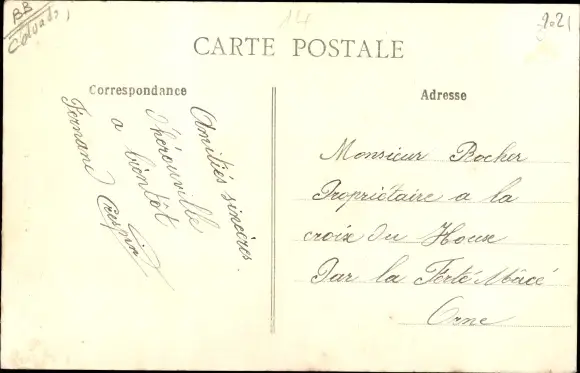 BB
Calvados
14
CARTE POSTALE
Correspondance
Amitiés sincères.
d'hérouville
a bientôt
Fernand Crespin
Adresse
Monsieur Rocher
Propriétaire a la
croix du Housse
Par la Ferté Macé
Orne